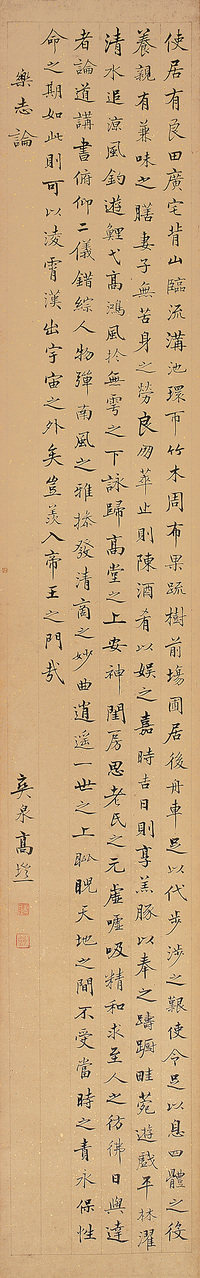 使居有良田廣宅背山臨流溝池環帀竹木周布果蔬樹前場圃居後舟車足以代步涉之艱使令足以息四體之役
養親有兼味之膳妻子無苦身之勞良朋萃止則陳酒肴以娛之嘉時吉日則享羔豚以奉之躊躕畦菀遊戲平林濯
清水追涼風釣遊鯉弋高鴻風於無雩之下詠歸高堂之上安神閨房思老氏之元虛噓吸精和求至人之彷彿日與達
者論道講書俯仰二儀錯綜人物彈南風之雅操發清商之妙曲逍遙一世之上睨天地之間不受當時之責永保性
命之期如此則可以淩霄漢出宇宙之外矣豈羨入帝王之門哉
樂志論
奕泉高